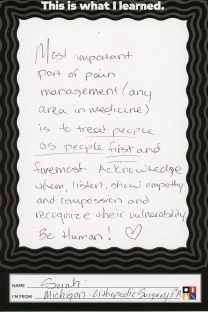 This is what I learned.
Most important
part of pain
management (any
area in medicine)
is to treat people
as people first and
foremost. Acknowledge
them, listen, show empathy
and compassion and
recognize their vulnerability
Be Human! ♡
NAME Sarah
I'M FROM Michigan - Orthopedic Surgery